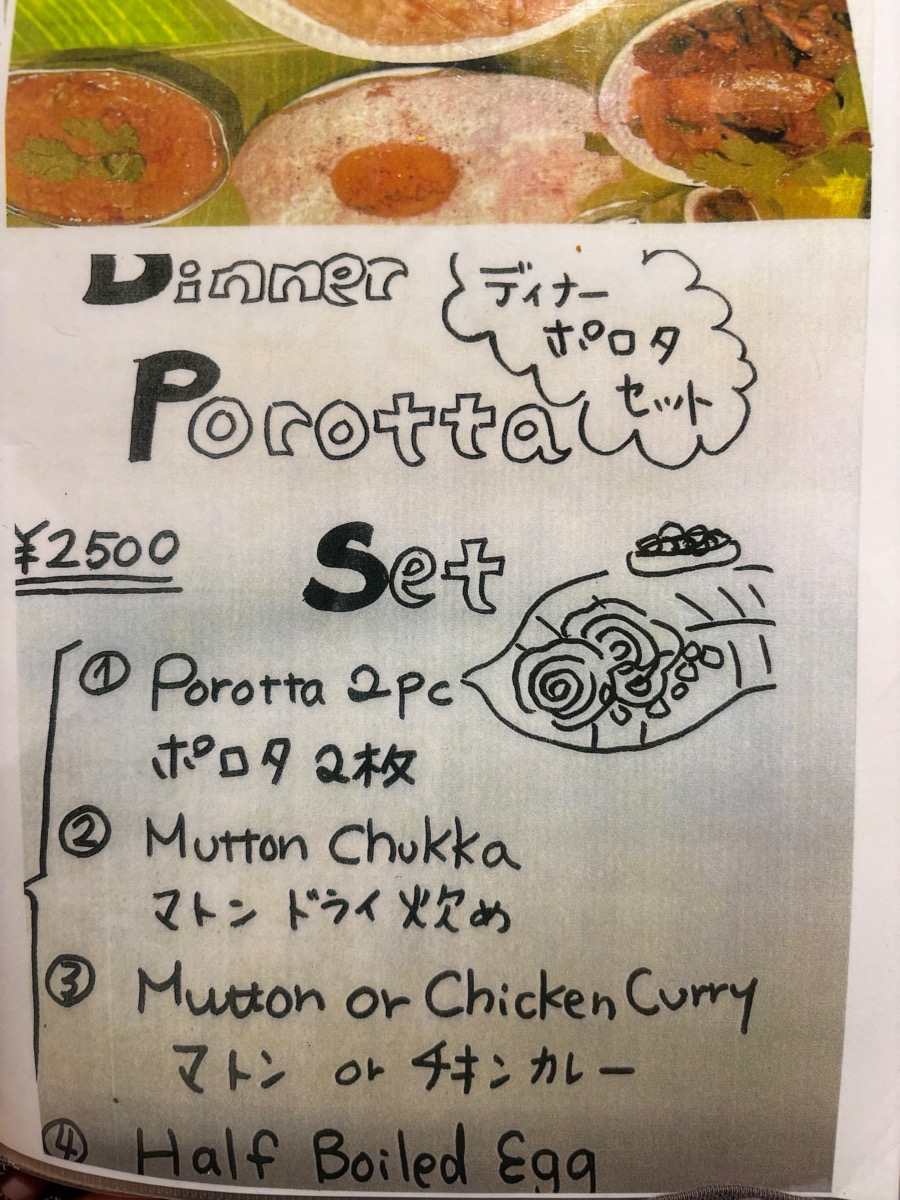 Dinner
ディナー
ポロタ
セット
Porotta
¥2500
Set
① Porotta 2pc
ポロタ 2枚
② Mutton Chukka
マトン ドライ炊め
③ Mutton or Chicken Curry
マトン or チキンカレー
④ Half Boiled Egg